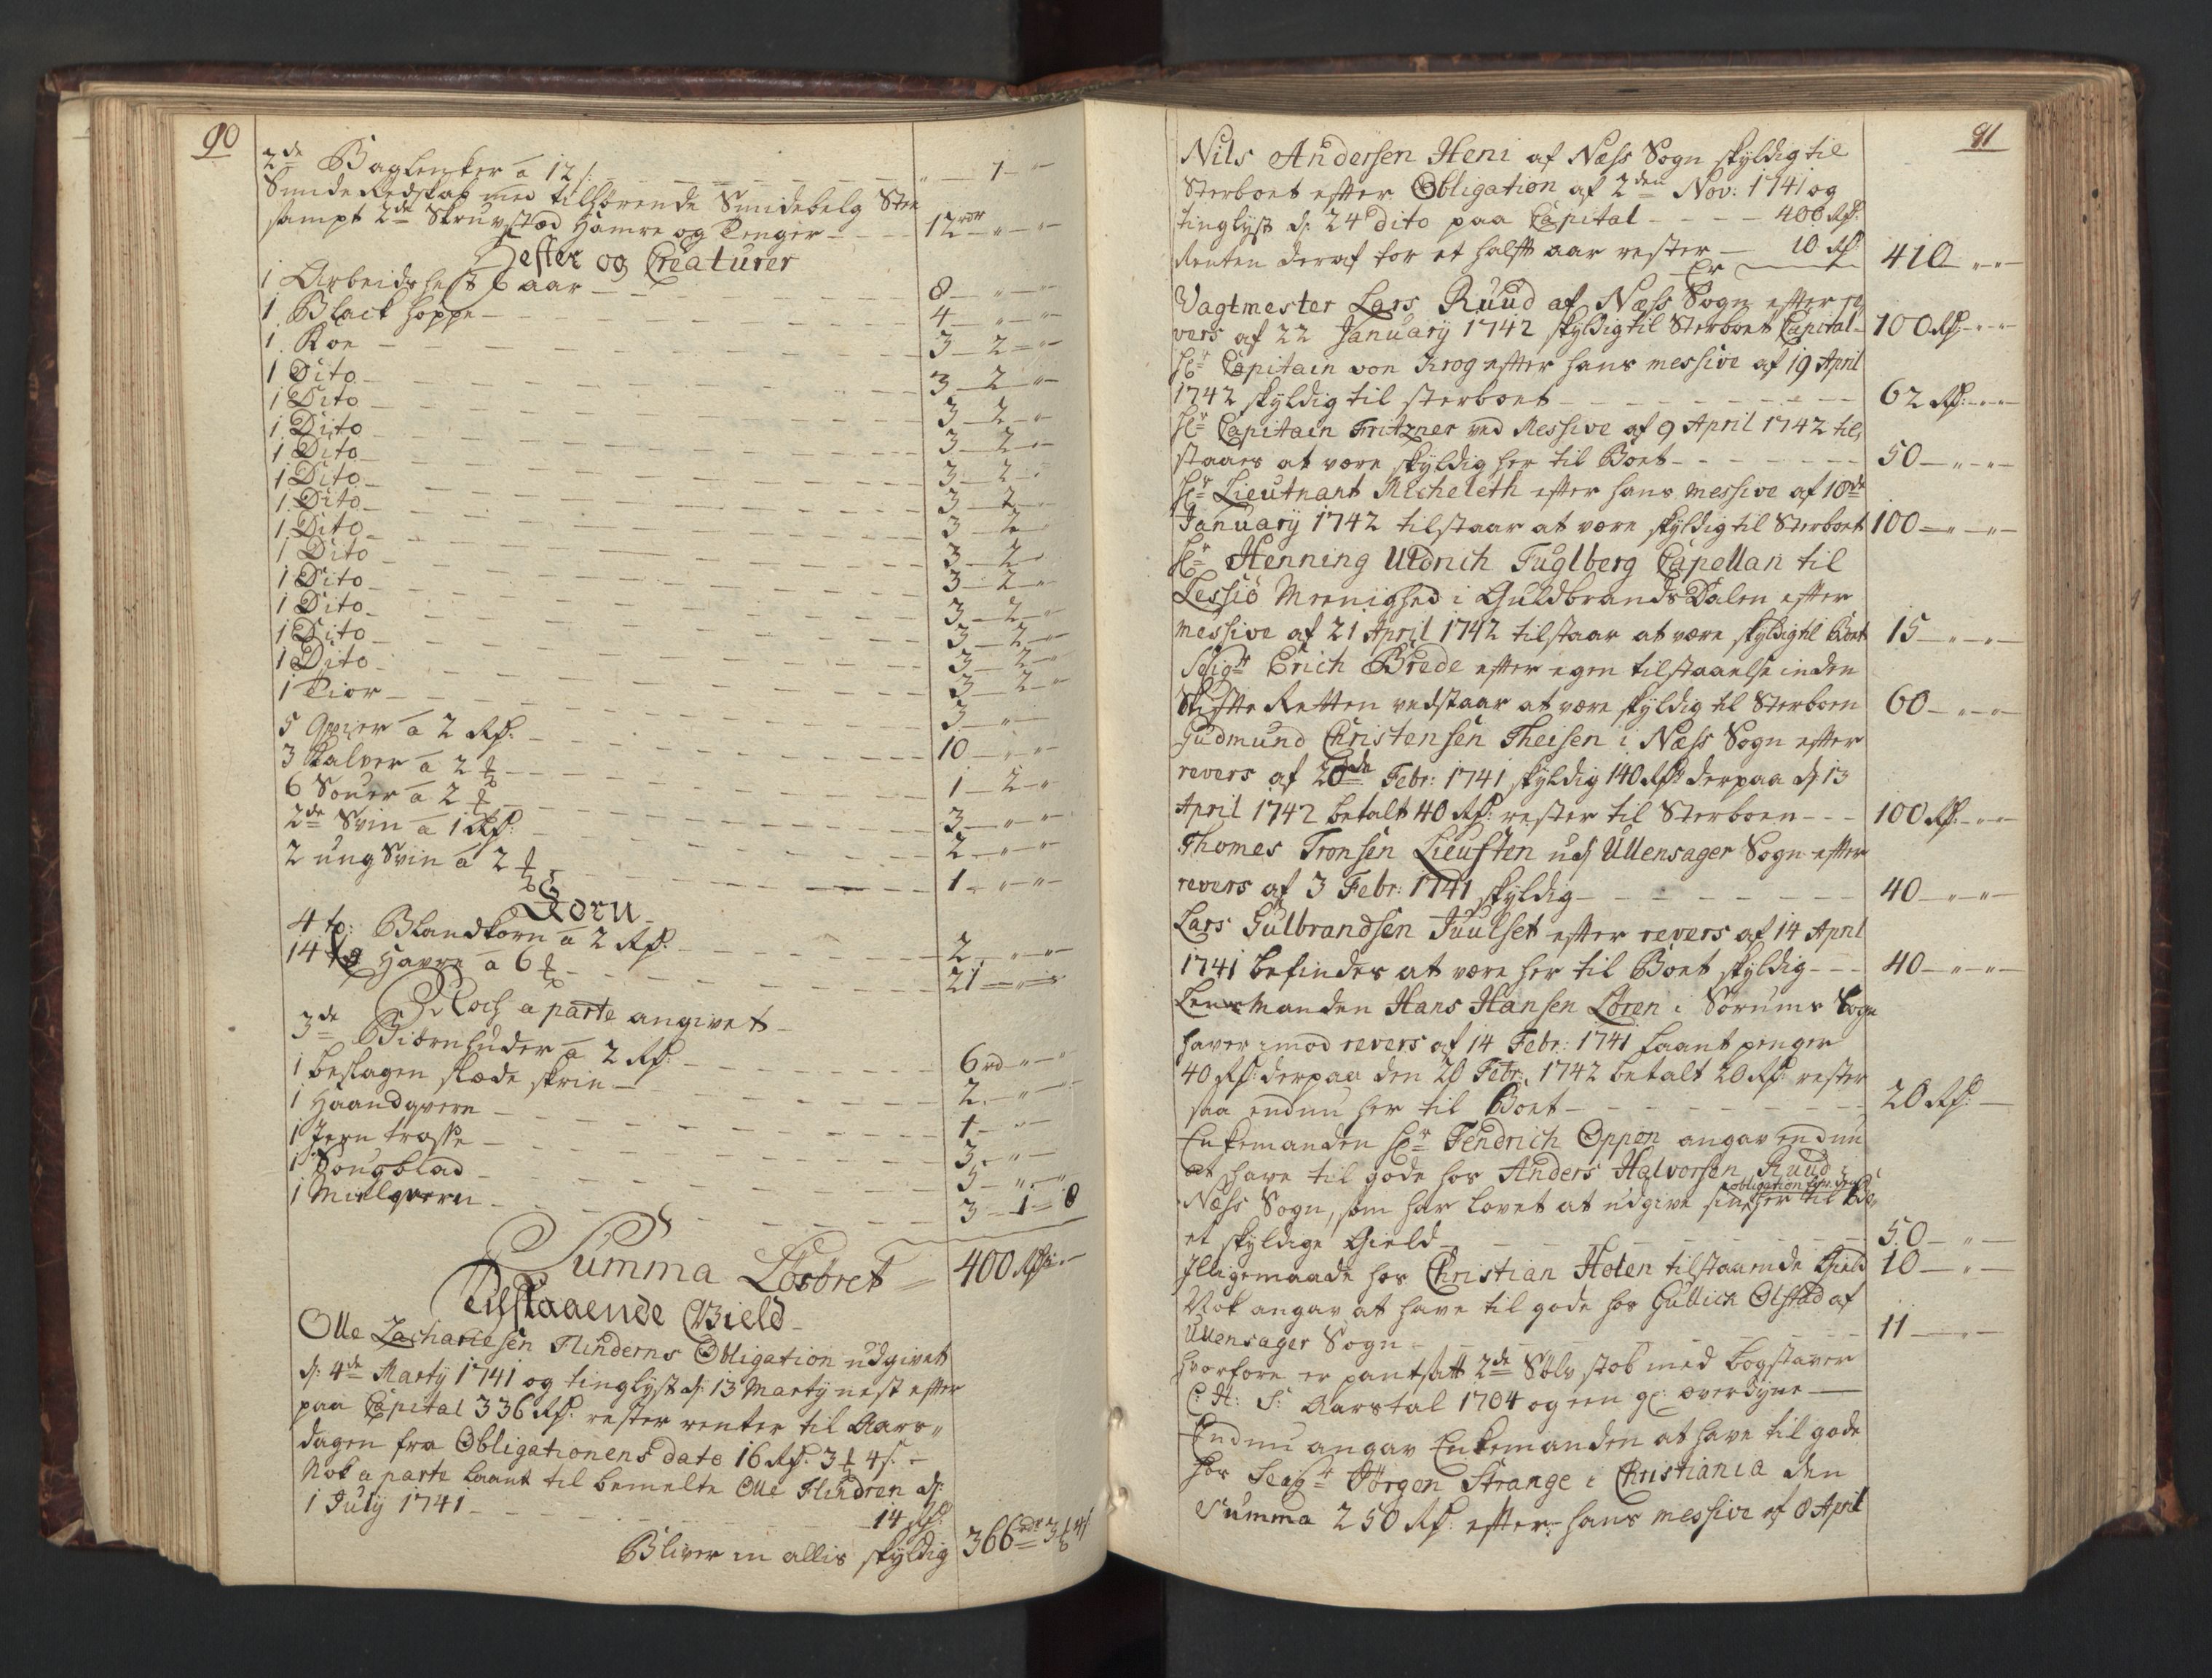 90
2de Baglenker a 12 s: — " — 1 — "
Smide Redskab med tilhørende Smidebelg Ste
sampt 2de Skruvstæd Hamre og Tenger — 12 rdr — " — "
Hester og Creaturer
1 Arbeidshest 6 aar — 8 — " — "
1 Black Hoppe — 4 — " — "
1 Koe — 3 — 2 — "
1 Dito — 3 — 2 — "
1 Dito — 3 — 2 — "
1 Dito — 3 — 2 — "
1 Dito — 3 — 2 — "
1 Dito — 3 — 2 — "
1 Dito — 3 — 2 — "
1 Dito — 3 — 2 — "
1 Dito — 3 — 2 — "
1 Dito — 3 — 2 — "
1 Dito — 3 — 2 — "
1 Dito — 3 — 2 — "
1 Dito — 3 — 2 — "
1 Tior — 3 — " —
5 Qvier a 2 Rd: — 10 — " — "
3 Kalver a 2 ₻ — 1 — 2 — "
6 Souer a 2 ₻ — 3 — " — "
2de Svin a 1 Rd: — 2 — " — "
2 ung Svin a 2 ₻ — 1 — " — "
Korn
4 tr: Blandkorn a 2 Rd: — 2 — " — "
14 tr Havre a 6 ₻ — 21 — " — "
Noch a parte angivet
3de Biørnhuder a 2 Rd: — 6 rd — " — "
1 beslagen slæde skrin — 2 — " —
1 Haandqvern — 1 — " —
1 Jern trosse — 3 — " —
1 Sougblad — 3 — " — "
1 Mielqvern — 3 — 1 — 8
Summa Løsøret — 400 Rd: —
Tilstaaende Gield
Olle Zachariesen Flinderns Obligation udgivet
d: 4de Marty 1741 og tinglyst d: 13 Marty nest efter
paa Capital 336 Rd: rester renter til Aars-
dagen fra Obligationens dato 16 Rd: 3 ₻ 4 s: —
Nok a parte laant til bemelte Olle Flindren d:
1 July 1741 — 14 Rd:
Bliver in allis skyldig 366 rdr 3 ₻ 4 s
91
Nils Andersen Heni af Næss Sogn skyldig til
Sterboet efter Obligation af 2den Nov: 1741 og
tinglyst d: 24 dito paa Capital — 400 Rd:
Renten deraf for et halft aar rester — 10 Rd
Er — 410 — " — "
Vagtmester Lars Ruud af Næss Sogn efter re
vers af 22 January 1742 skyldig til Sterboet Capital — 100 Rd: — " — "
Hr Capitain von Krog efter hans messive af 19 April
1742 skyldig til sterboet — 62 Rd: — " — "
Hr Capitain Fritzner ved Messive af 9 April 1742 til
staaes at være skyldig her til Boet — 50 — " — "
Hr Lieutnant Micheleth efter hans messive af 18de
January 1742 tilstaar at være skyldig til Sterboet 100 — " — "
Hr Henning Uldrich Fuglberg Capellan til
Lessiø Menighed i GuldbrandsDalen efter
messive af 21 April 1742 tilstaar at være skyldig til Boet 15 — " — "
Seigr Erich Brede efter egen tilstaaelse inden
Skifte Retten vedstaar at være skyldig til Sterboen 60 — " — "
Gudmund Christensen Theisen i Næss Sogn efter
revers af 20de Febr: 1741 skyldig 140 Rd: derpaa d: 13
April 1742 betalt 40 Rd: rester til Sterboen — 100 Rd: — " — "
Thomes Tronsen Lieusten ud j Ullensager Sogn efter
revers af 3 Febr: 1741 skyldig — 40 — " — "
Lars Gulbrandsen Juulset efter revers af 14 April
1741 befindes at være her til Boet skyldig — 40 — " — "
Lensmanden Hans Hansen Loren i Sørums Sogn
haver imod revers af 14 Febr: 1741 laant penger
40 Rd: derpaa den 20 Febr: 1742 betalt 20 Rd: rester
saa endnu her til Boet — 20 Rd: —
Enkemanden Hr Fendrich Oppen angav endnu
at have til gode hos Anders Halvorsen Ruud i
Næss Sogn, som har lovet at udgive sin obligation for den her til Bo
et skyldige Gield — 50 — " —
Jlligemaade hos Christian Holen tilstaaende Gield 10 — " —
Nok angav at have til gode hos Gullich Olstad af
Ullensager Sogn — 11 — " —
hvorfore er pantsatt 2de Sølv stob med bogstaver
C: H: S: Aarstal 1704 og en gl: overdyne —
Endnu angav Enkemanden at have til gode
hos Seigr Jørgen Strange i Christiania den
Summa 250 Rd: efter hans messive af 8 April